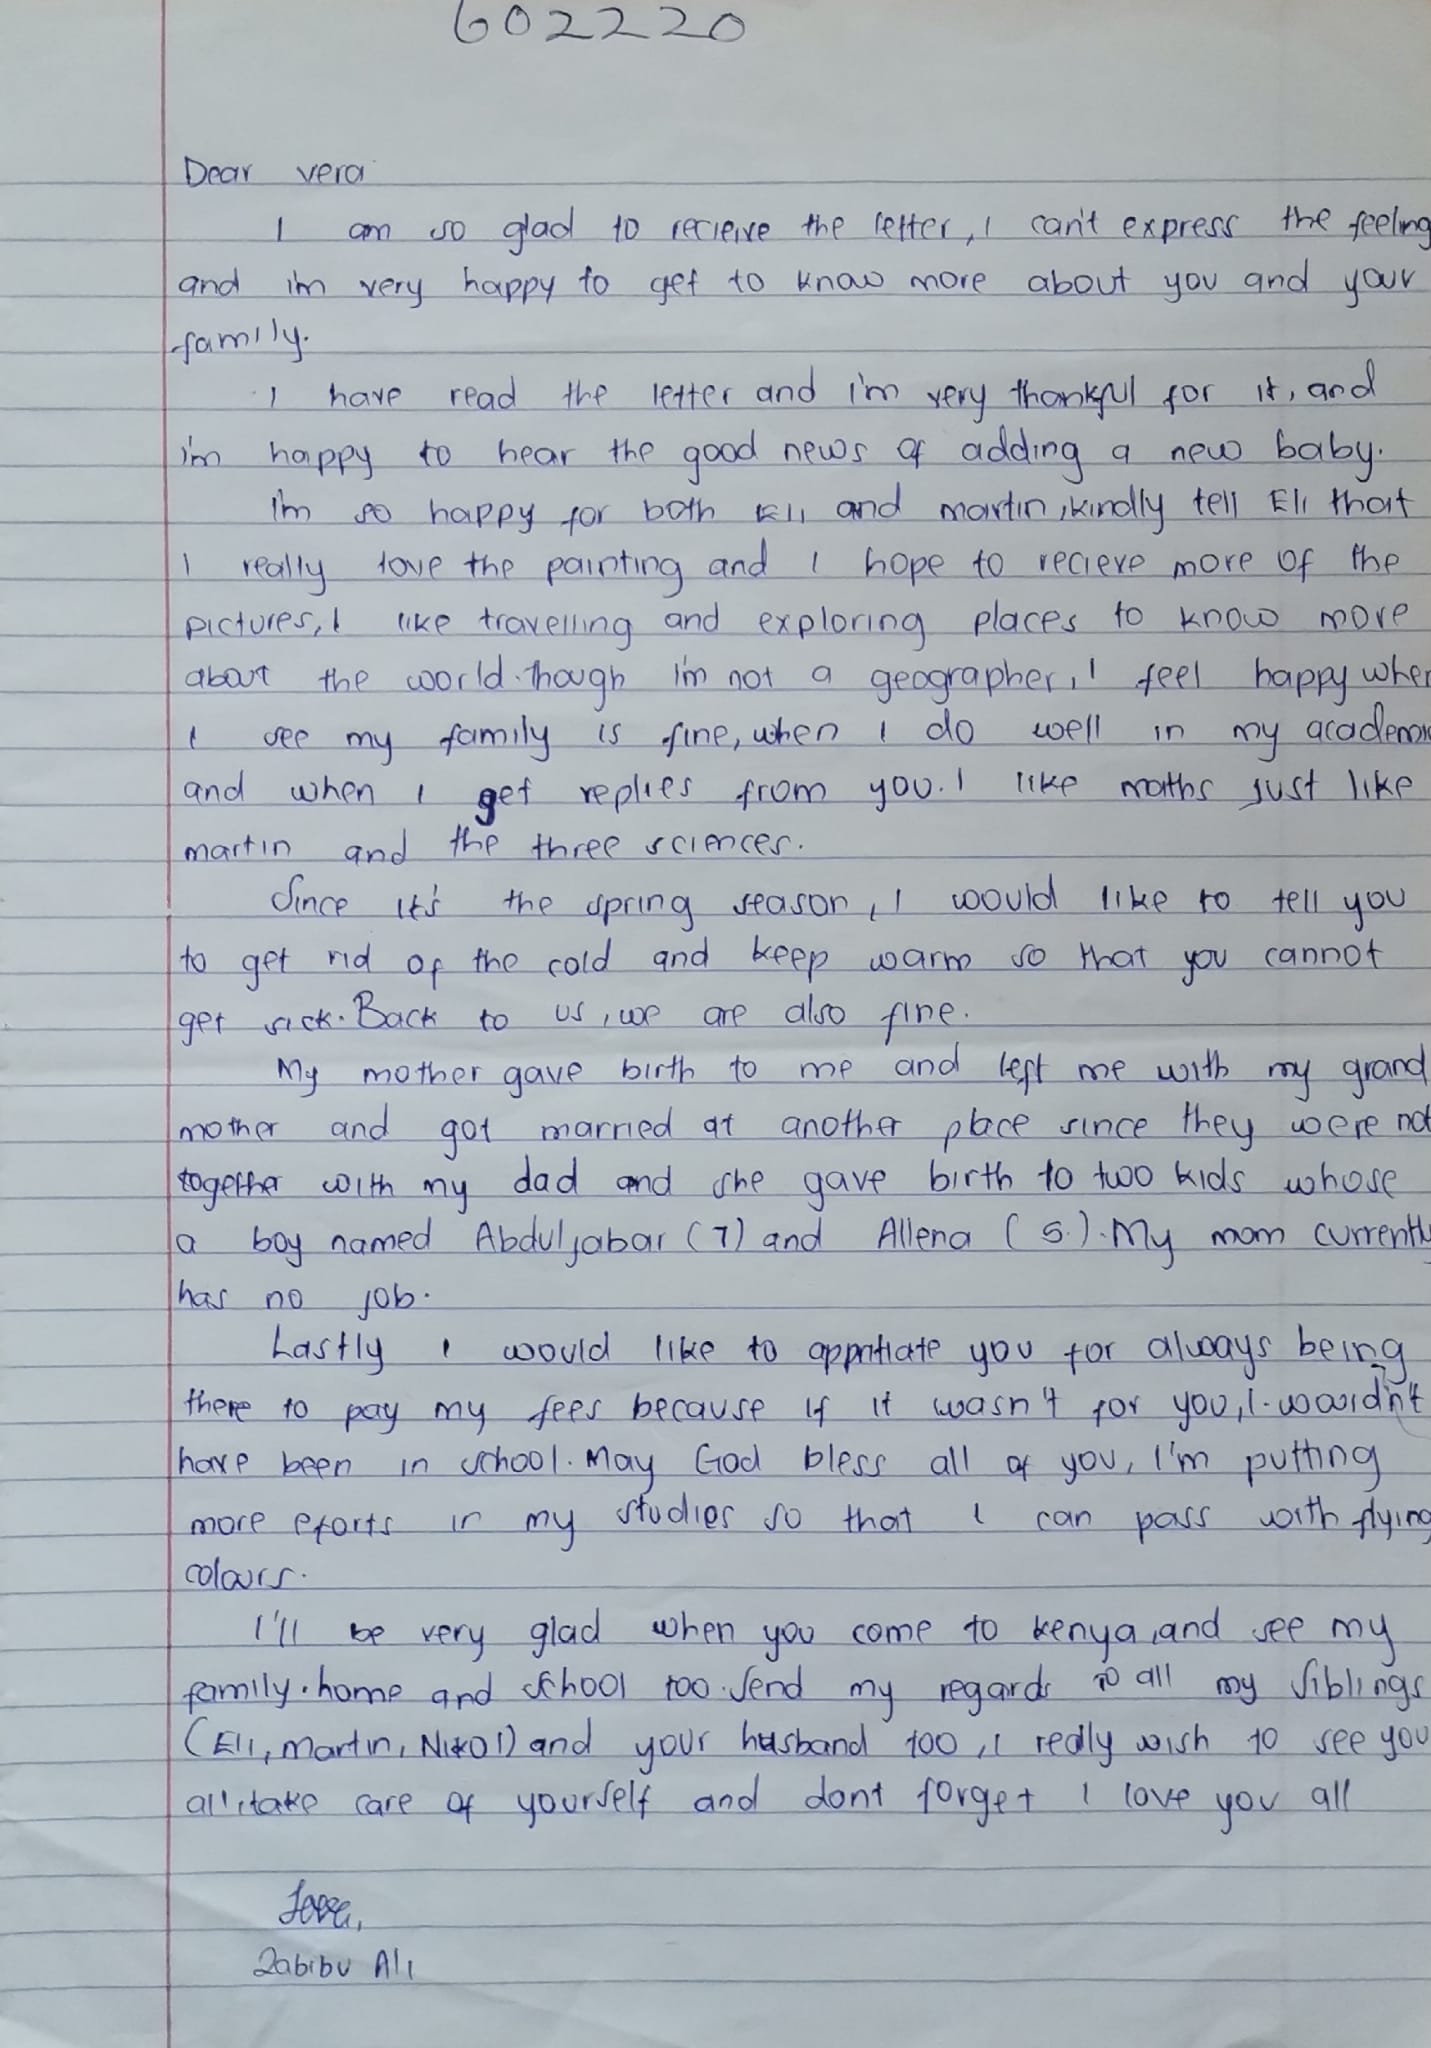 602220
Dear vera
I am so glad to recieive the letter, I can't express the feeling
and i'm very happy to get to know more about you and your
family.
I have read the letter and I'm very thankful for it, and
i'm happy to hear the good news of adding a new baby.
I'm so happy for both Eli and martin, kindly tell Eli that
I really love the painting and I hope to recieve more of the
pictures, I like travelling and exploring places to know more
about the world. though I'm not a geographer, I feel happy when
I see my family is fine, when I do well in my academi
and when I get replies from you. I like maths just like
martin and the three sciences.
Since it's the spring season, I would like to tell you
to get rid of the cold and keep warm so that you cannot
get sick. Back to us, we are also fine.
My mother gave birth to me and left me with my grand
mother and got married at another place since they were not
together with my dad and she gave birth to two kids whose
a boy named Abduljabar (7) and Allena (5.). My mom currently
has no job.
Lastly I would like to appritiate you for always being
there to pay my fees because if it wasn't for you, I wouldn't
have been in school. May God bless all of you, I'm putting
more eforts in my studies so that I can pass with flying
colours.
I'll be very glad when you come to kenya, and see my
family. home and school too. Send my regards to all my siblings
(Eli, martin, Nikol) and your husband too, I really wish to see you
all, take care of yourself and dont forget I love you all
Love,
Zabibu Ali